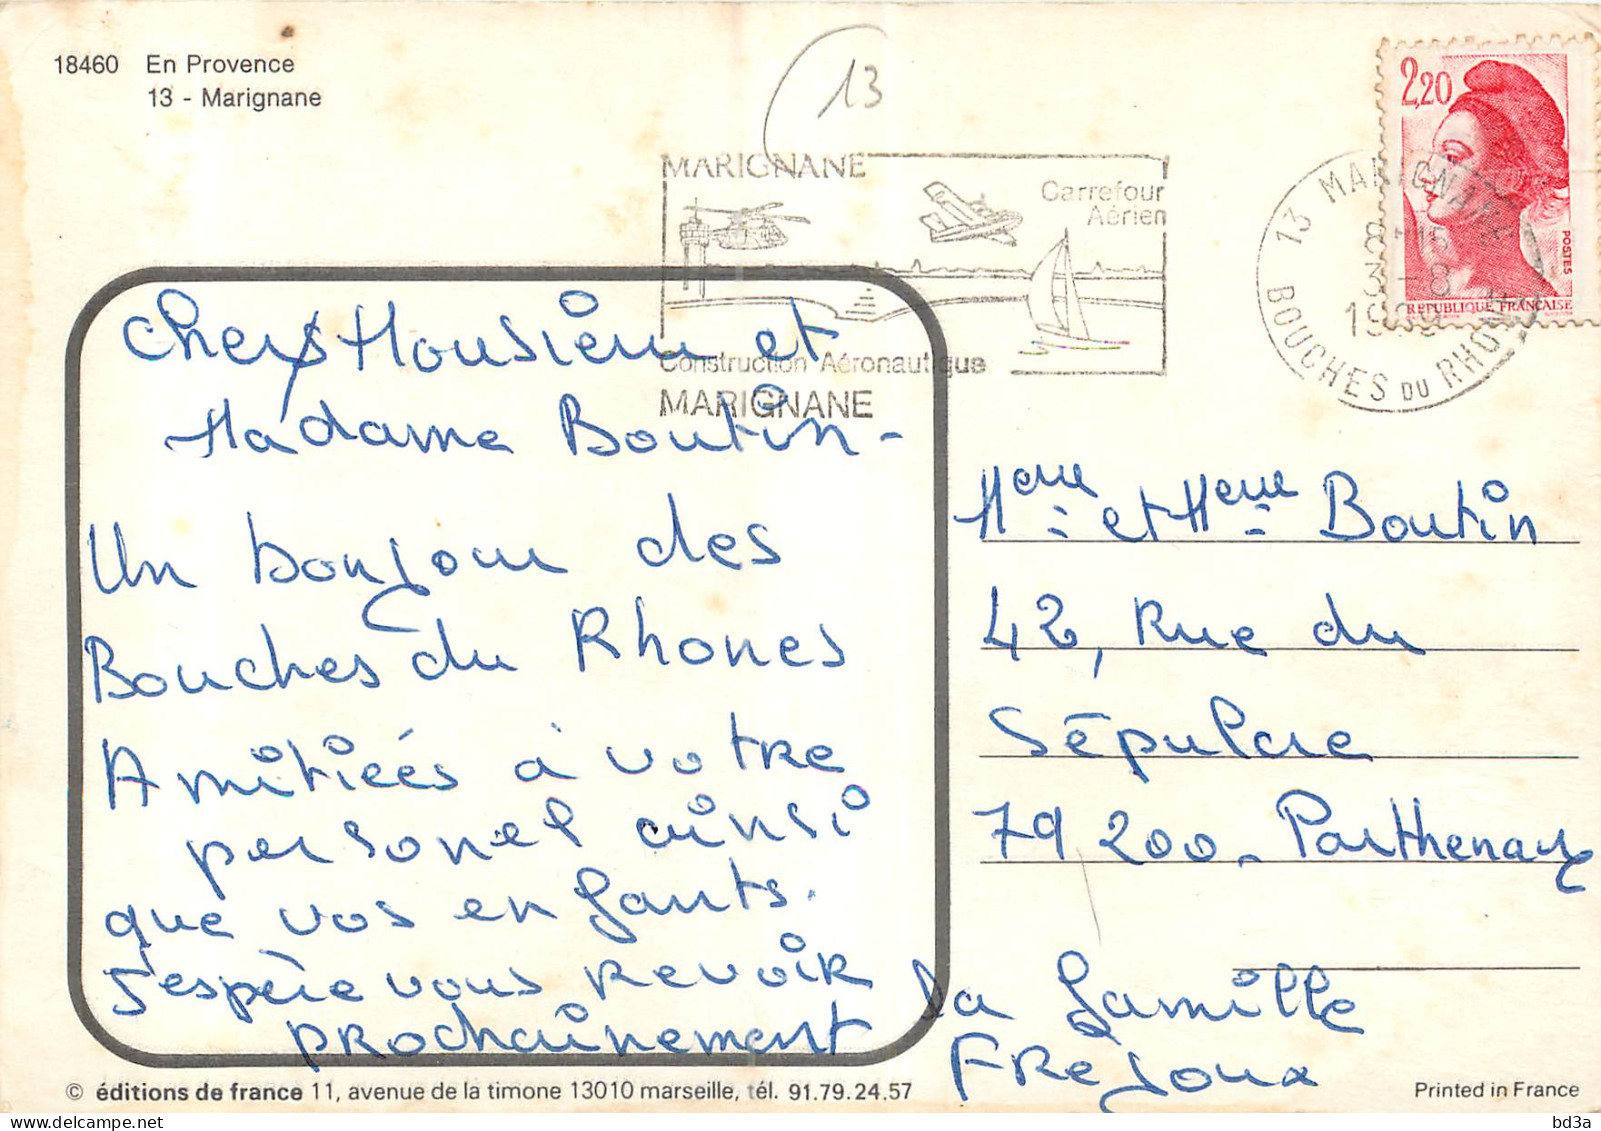 18460 En Provence
13 - Marignane
13
MARIGNANE
Carrefour
Aérien
Construction Aéronautique
MARIGNANE
13 MARIGNANE
8H15
3-8
1989
BOUCHES DU RHONE
2,20
POSTES
REPUBLIQUE FRANÇAISE
Chers Monsieur et
Madame Boutin -
Un bonjour des
Bouches du Rhones
Amitiés à votre
personel ainsi
que vos enfants.
J'espère vous revoir
prochainement
Meur et Meme Boutin
42, Rue du
Sépulcre
79200 - Parthenay
La famille
Frejoux
© éditions de france 11, avenue de la timone 13010 marseille, tél. 91.79.24.57
Printed in France
bd3a